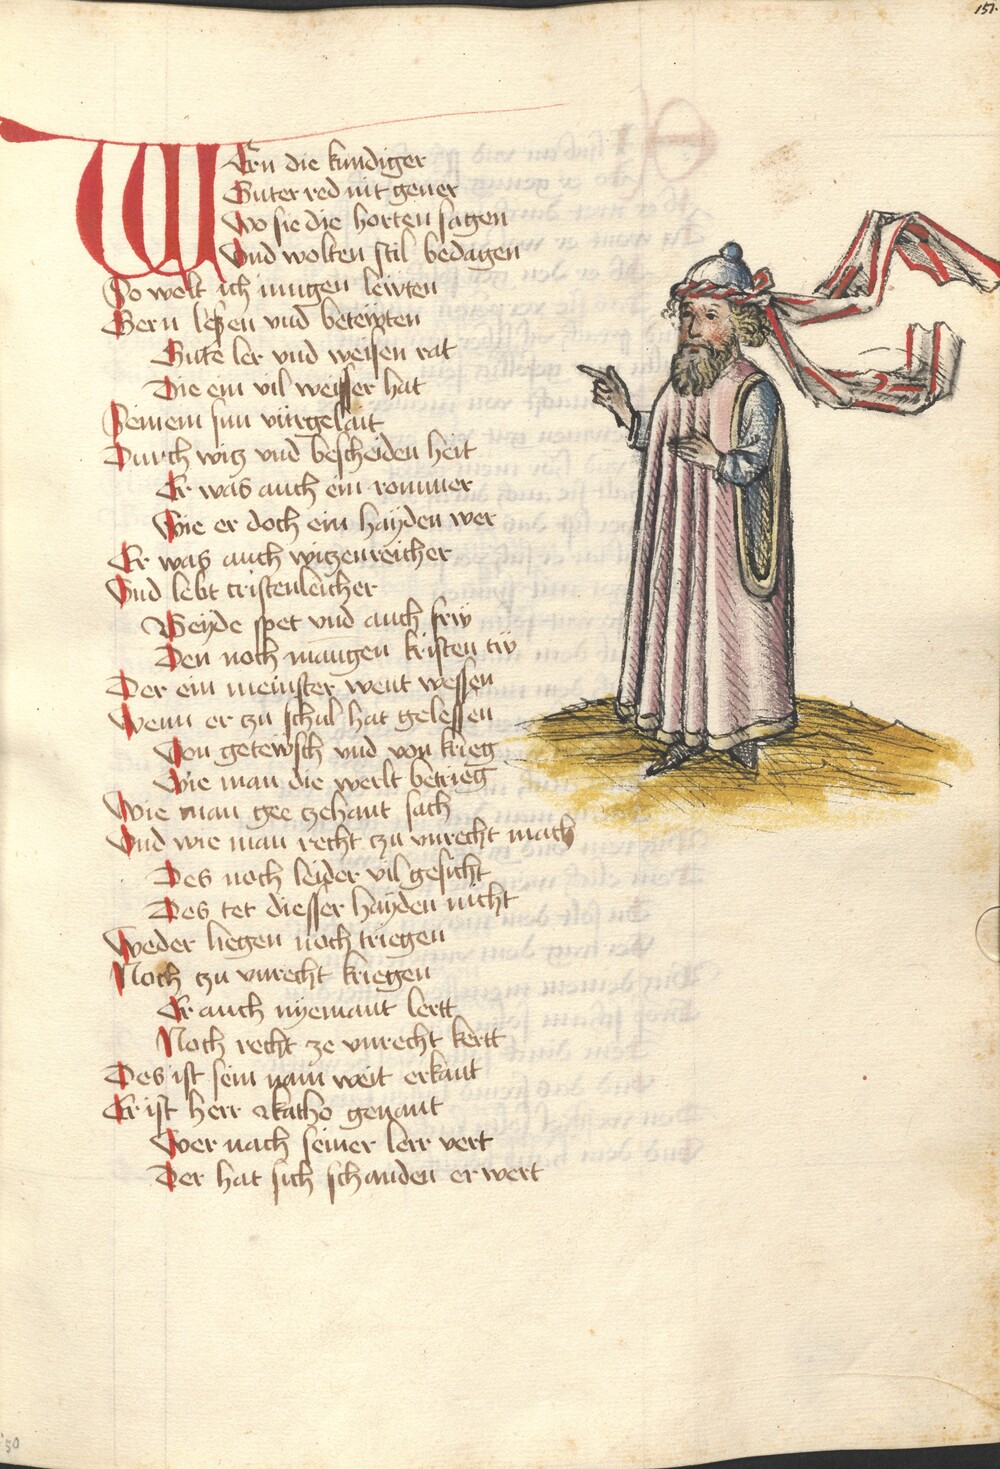 151.
WErn die kundiger
Guter red nit gener
Wo sie die horten sagen
Und wolten stil bedagen
So welt ich iungen lewten
Gern leßen und betewten
Gute ler und weisen rat
Die ein vil weisser hat
Seinem sun vurgelait
Durch witz und bescheiden heit
Er was auch ein rommer
Wie er doch ein hayden wer
Er was auch witzenreicher
Und lebt cristenleicher
Beyde spet und auch frw
Den noch mangen kristen tw
Der ein meinster went wessen
Wenn er zu schul hat gelessen
Von getewsch und von krieg
Wie man die werlt betrieg
Wie man gee zehant sach
Und wie man recht zu unrecht mach
Des noch leider vil gesicht
Des tet diesser hayden nicht
Weder liegen noch triegen
Noch zu unrecht kriegen
Er auch nyemant lertt
Noch recht ze unrecht kertt
Des ist sein nam weit erkant
Er ist herr katho genant
Wer nach seiner lerr vert
Der hat sich schanden erwert
50